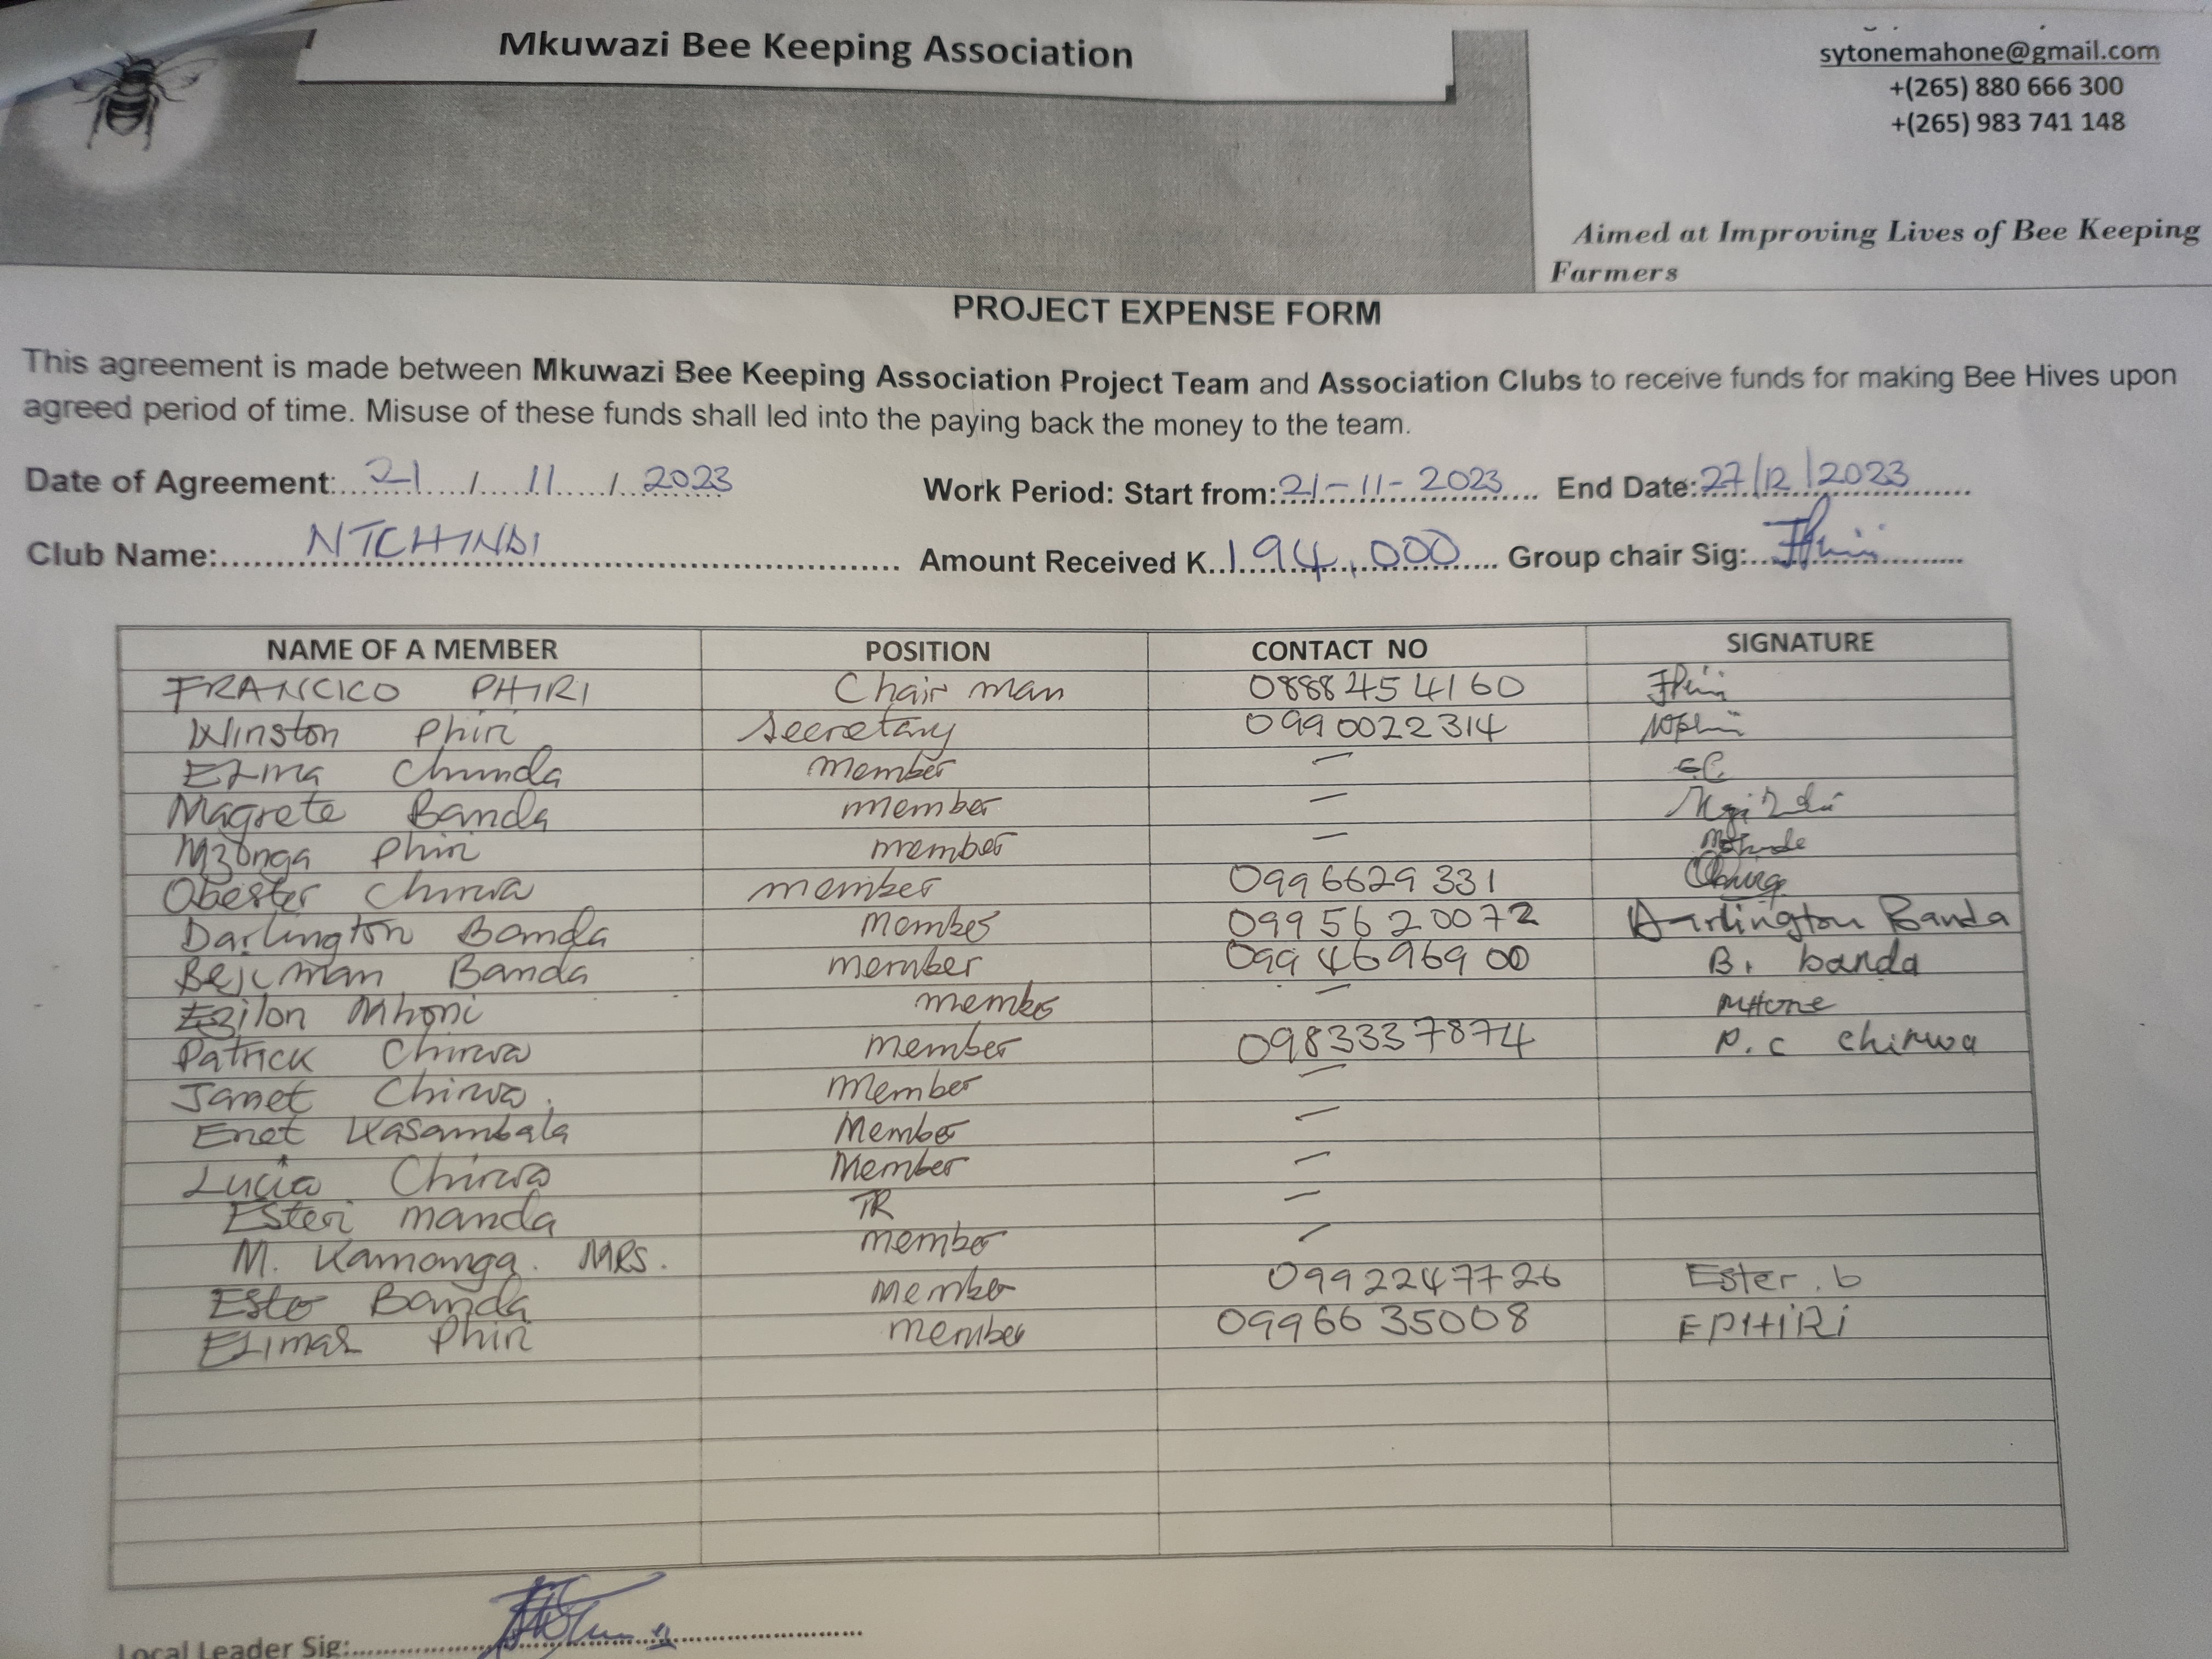 Mkuwazi Bee Keeping Association
sytonemahone@gmail.com
+(265) 880 666 300
+(265) 983 741 148
Aimed at Improving Lives of Bee Keeping
Farmers
PROJECT EXPENSE FORM
This agreement is made between Mkuwazi Bee Keeping Association Project Team and Association Clubs to receive funds for making Bee Hives upon
agreed period of time. Misuse of these funds shall led into the paying back the money to the team.
Date of Agreement: 21 / 11 / 2023 Work Period: Start from: 21-11-2023 End Date: 27/12/2023
Club Name: NTCHINDI Amount Received K 194,000 Group chair Sig: FPhiri
NAME OF A MEMBER POSITION CONTACT NO SIGNATURE
FRANCICO PHIRI Chair man 0888454160 FPhiri
Winston Phiri Secretary 0990022314 WPhiri
Chunda member – E.C.
Magrete Banda member –
Mzonga Phiri member –
Obester Chirwa member 0996629331
Darlington Banda Member 0995620072 Darlington Banda
Banda member 0994696900 B. banda
Ezilon Mhoni member – MHone
Patrick Chirwa member 0983337874 P.C Chirwa
Janet Chirwa. member –
Enet Kasambala Member –
Lucia Chirwa Member –
Esteri manda TR –
M. Kamanga. MRS. member –
Ester Banda Member 0992247726 Ester.b
Phiri member 0996635008 EPHiRi
Local Leader Sig: